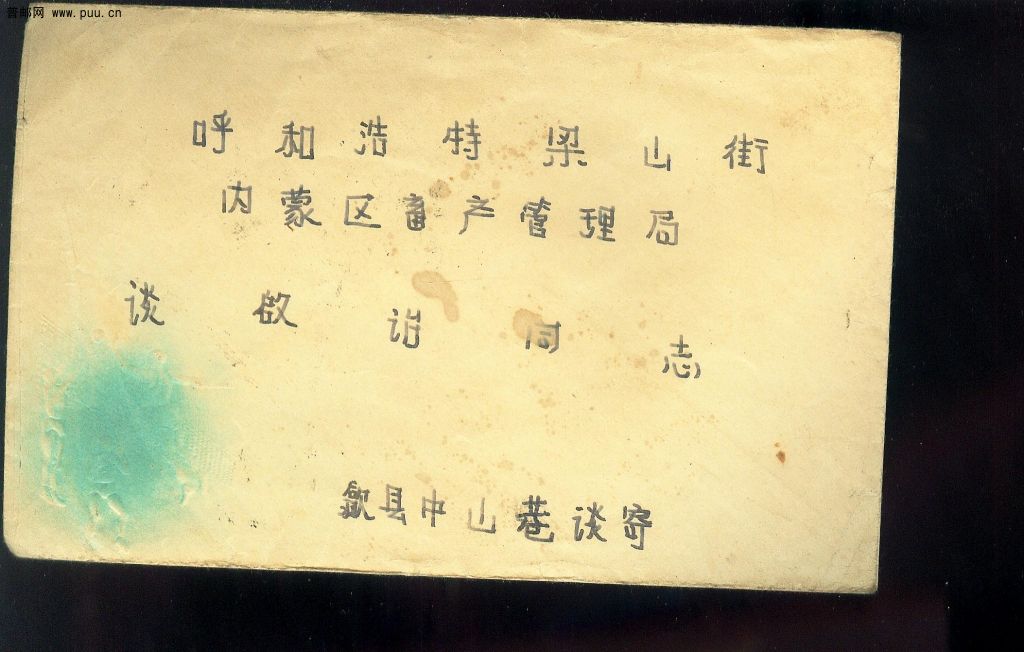 普邮网 www.puu.cn
呼和浩特梁山街
内蒙区畜产管理局
谈啟诒同志
歙县中山巷谈寄